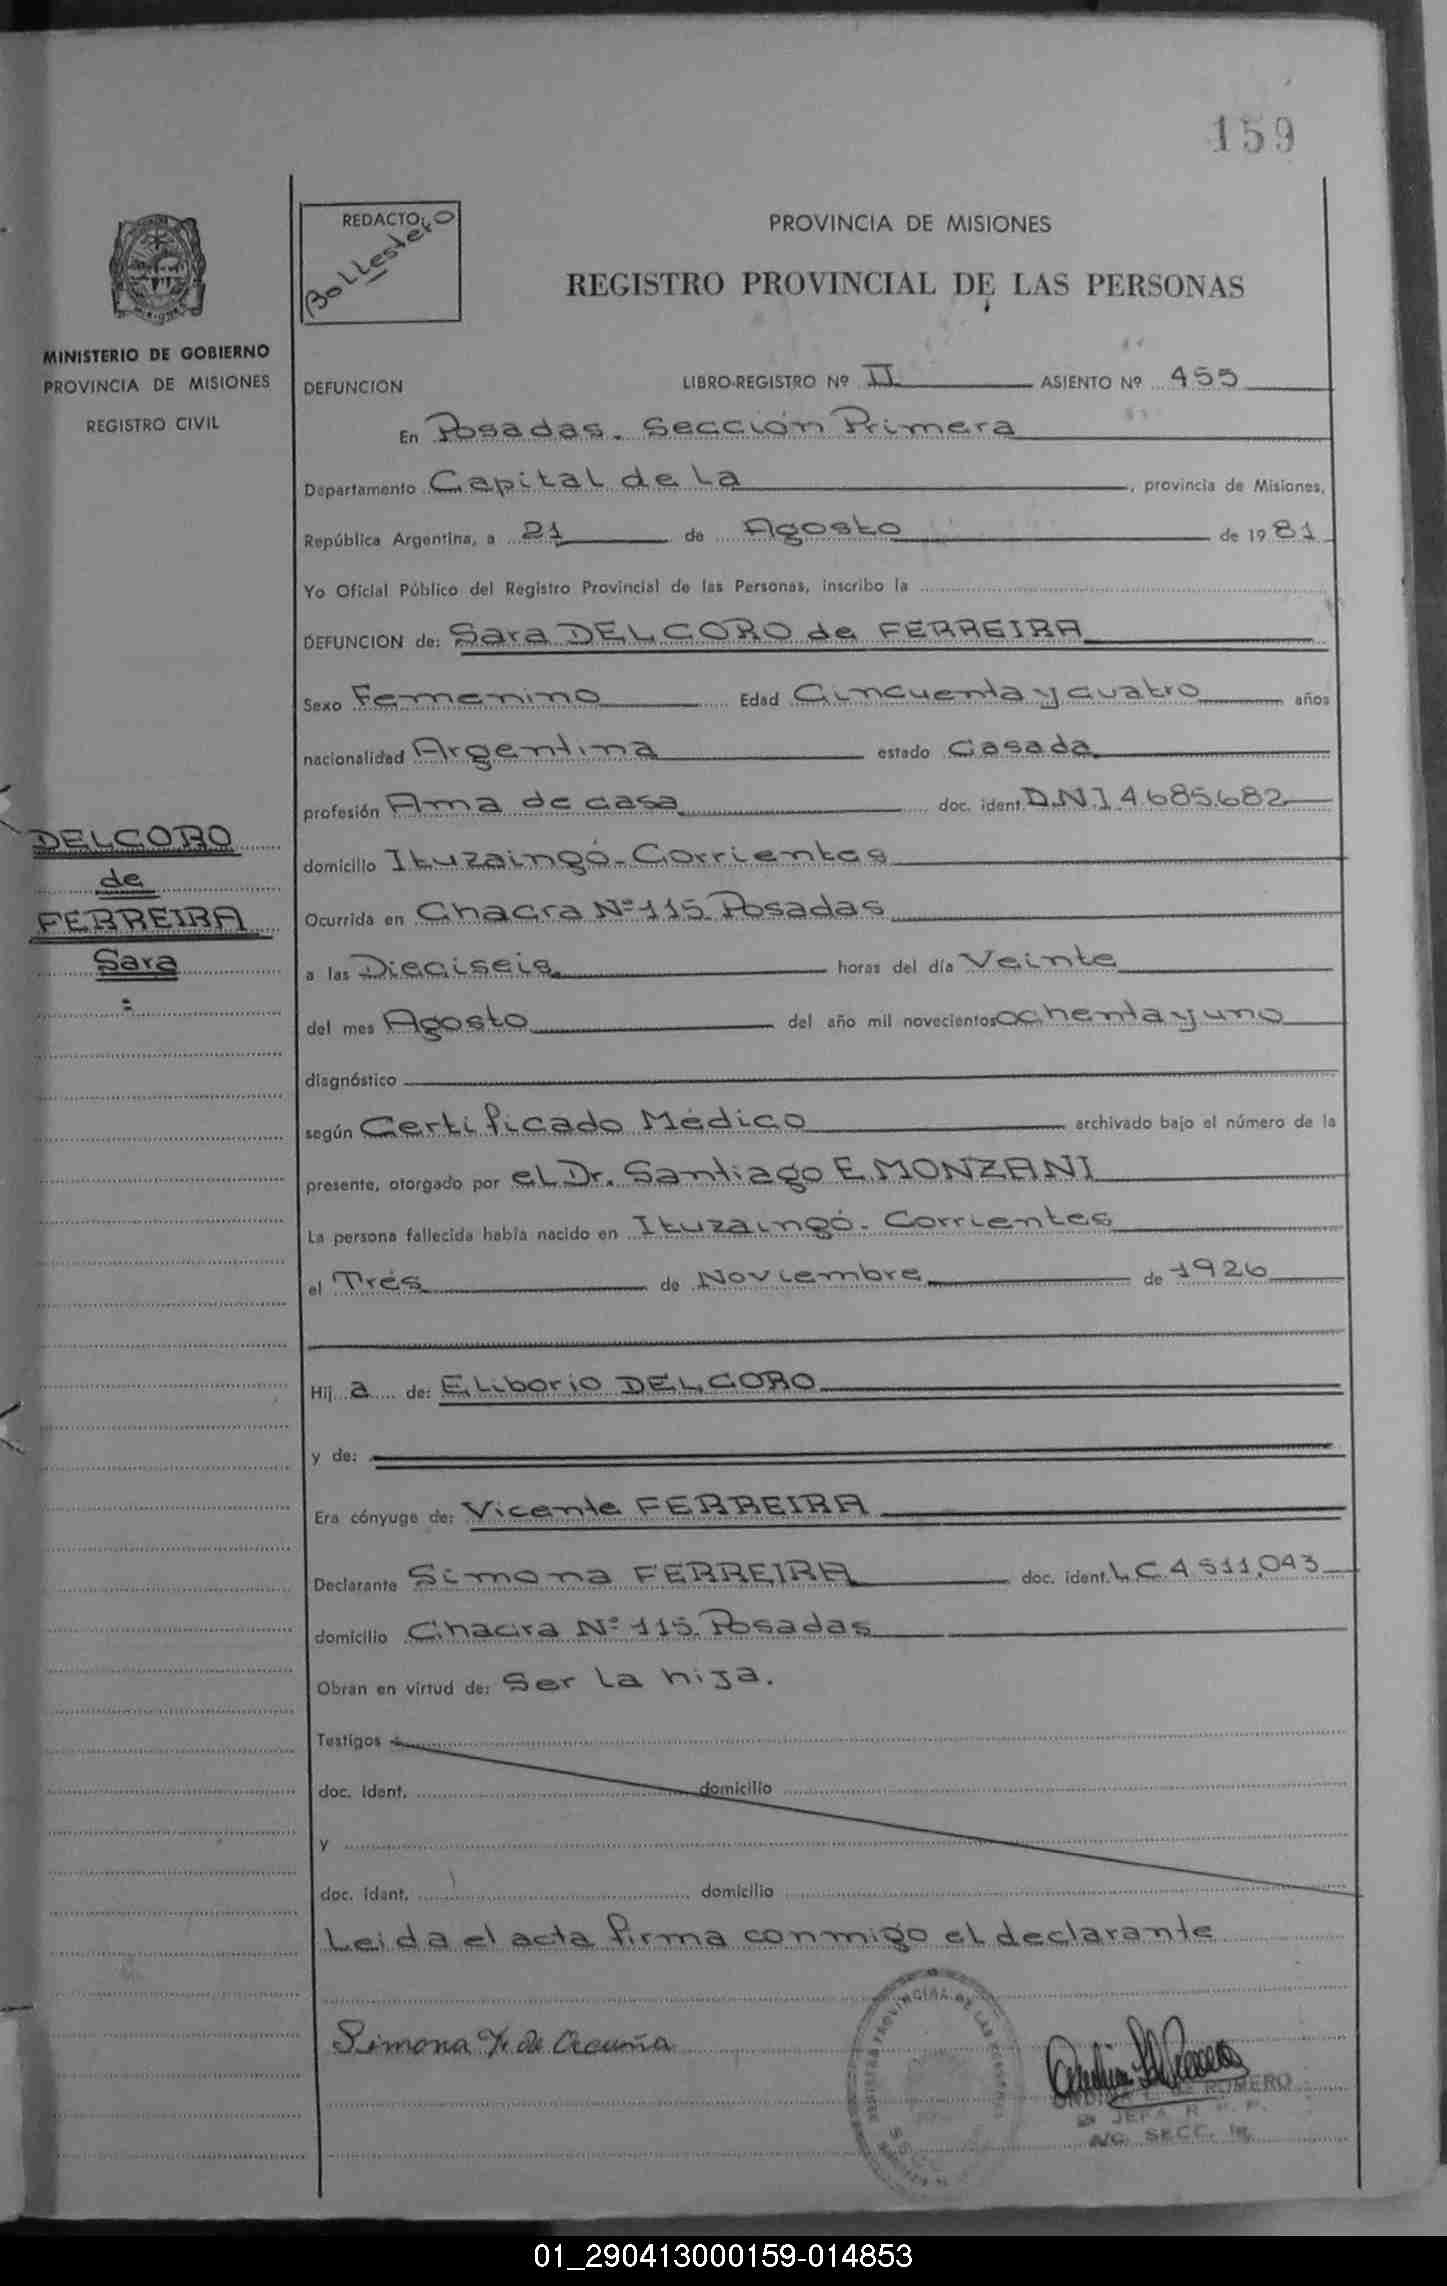 159
REDACTO
Ballestero
PROVINCIA DE MISIONES
REGISTRO PROVINCIAL DE LAS PERSONAS
MINISTERIO DE GOBIERNO
PROVINCIA DE MISIONES
REGISTRO CIVIL
DEFUNCION LIBRO-REGISTRO Nº II ASIENTO Nº 455
En Posadas. Sección Primera
Departamento Capital de La, provincia de Misiones,
República Argentina, a 21 de Agosto de 1981
Yo Oficial Público del Registro Provincial de las Personas, inscribo la
DEFUNCION de: Sara DELCORO de FERREIRA
Sexo Femenino Edad Cincuenta y cuatro años
nacionalidad Argentina estado Casada
profesión Ama de casa doc. ident. D.N.I 4.685.682
DELCORO
de
FERREIRA
Sara
domicilio Ituzaingó-Corrientes
Ocurrida en Chacra Nº115 Posadas
a las Dieciseis horas del día Veinte
del mes Agosto del año mil novecientos ochenta y uno
diagnóstico
según Certificado Médico archivado bajo el número de la
presente, otorgado por el Dr. Santiago E. MONZANI
La persona fallecida había nacido en Ituzaingó-Corrientes
el Trés de Noviembre de 1926
Hij a de: Eliborio DELCORO
y de:
Era cónyuge de: Vicente FERREIRA
Declarante Simona FERREIRA doc. ident. L.C. 4.511.043
domicilio Chacra Nº 115 Posadas
Obran en virtud de: Ser la hija.
Testigos
doc. ident. domicilio
y
doc. ident. domicilio
Leida el acta firma conmigo el declarante
Simona F. de Acuña
REGISTRO PROVINCIAL DE LAS PERSONAS
DE ROMERO
JEFA R. P. P.
A/C. SECC. 1ª
01_290413000159-014853